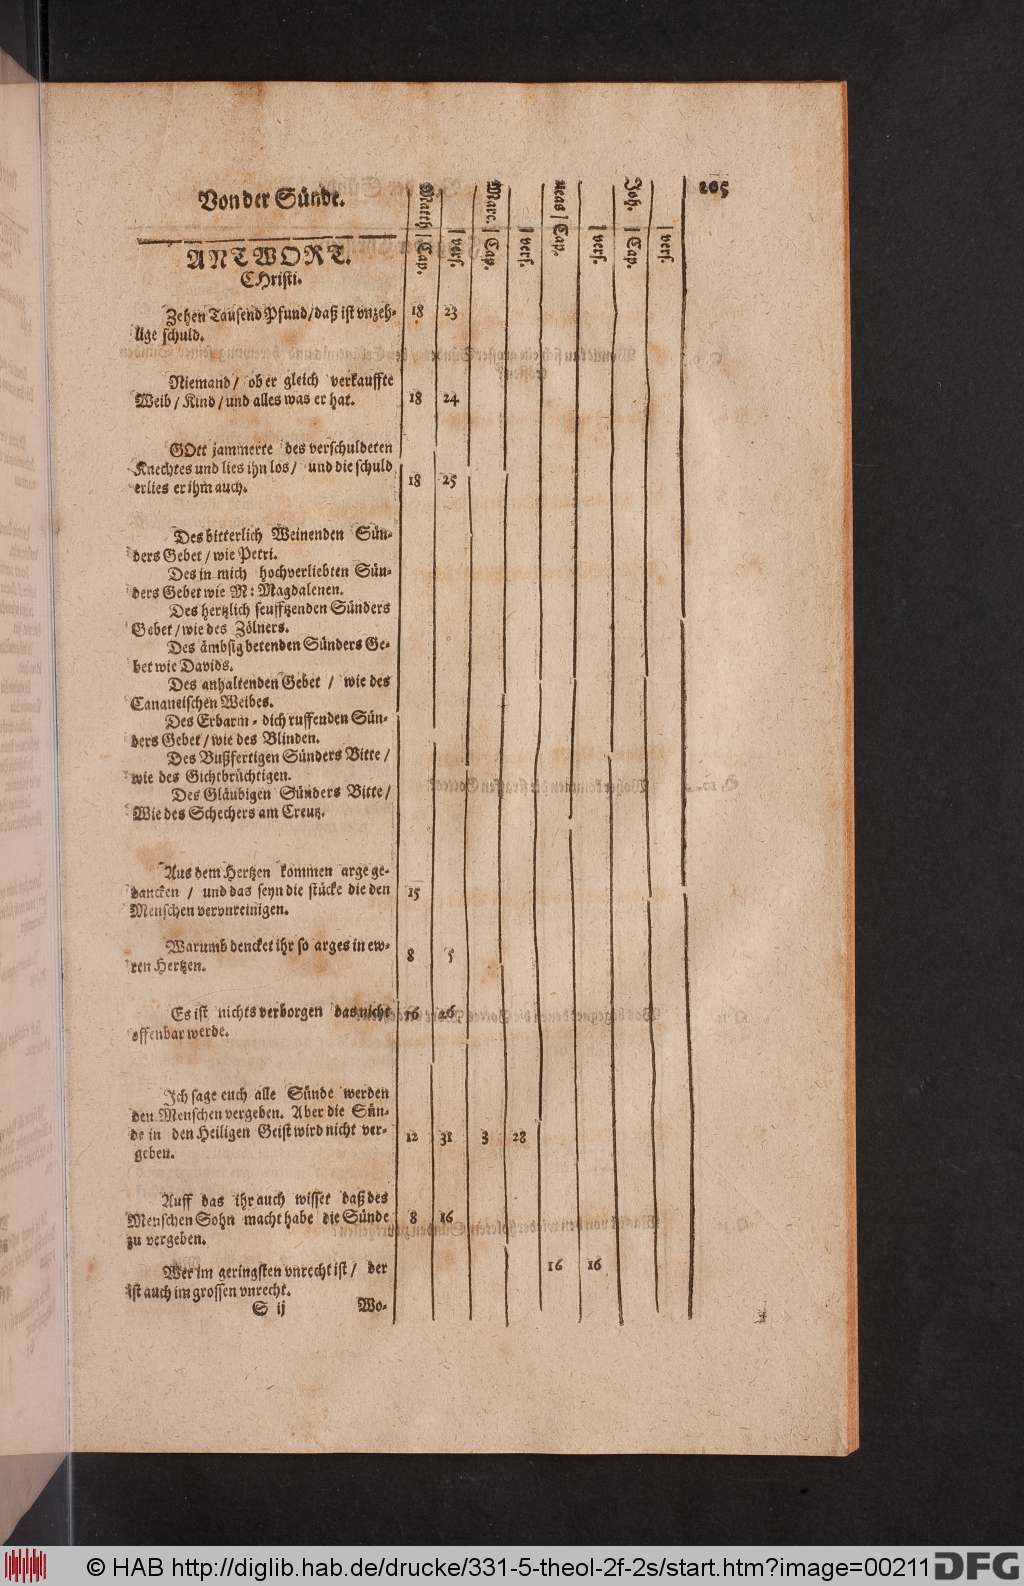 Von der Sünde.
Matth | Cap. | vers. Marc. | Cap. | vers. | Cap. | vers. Joh. | Cap. | vers.
205
ANTWORT.
CHristi.
Zehen Tausend Pfund/daß ist vnzeh- 18 23
lige schuld.
Niemand/ ob er gleich verkauffte
Weib/Kind/und alles was er hat. 18 24
GOtt jammerte des verschuldeten
Knechtes und lies ihn los/ und die schuld
erlies er ihm auch. 18 25
Des bitterlich Weinenden Sün-
ders Gebet/wie Petri.
Des in mich hochverliebten Sün-
ders Gebet wie M: Magdalenen.
Des hertzlich seufftzenden Sünders
Gebet/wie des Zölners.
Des ämbsig betenden Sünders Ge-
bet wie Davids.
Des anhaltenden Gebet / wie des
Cananeischen Weibes.
Des Erbarm-dich ruffenden Sün-
ders Gebet/wie des Blinden.
Des Bußfertigen Sünders Bitte/
wie des Gichtbrüchtigen.
Des Gläubigen Sünders Bitte/
Wie des Schechers am Creutz.
Aus dem Hertzen kommen arge ge-
dancken / und das seyn die stücke die den 15
Menschen vervnreinigen.
Warumb dencket ihr so arges in ew- 8 5
ren Hertzen.
Es ist nichts verborgen das nicht 16 26
offenbar werde.
Ich sage euch alle Sünde werden
den Menschen vergeben. Aber die Sün-
de in den Heiligen Geist wird nicht ver- 12 31 3 28
geben.
Auff das ihr auch wisset daß des
Menschen Sohn macht habe die Sünde 8 16
zu vergeben.
Wer im geringsten vnrecht ist/ der 16 16
ist auch im grossen vnrecht.
S ij Wo-
© HAB http://diglib.hab.de/drucke/331-5-theol-2f-2s/start.htm?image=00211
DFG